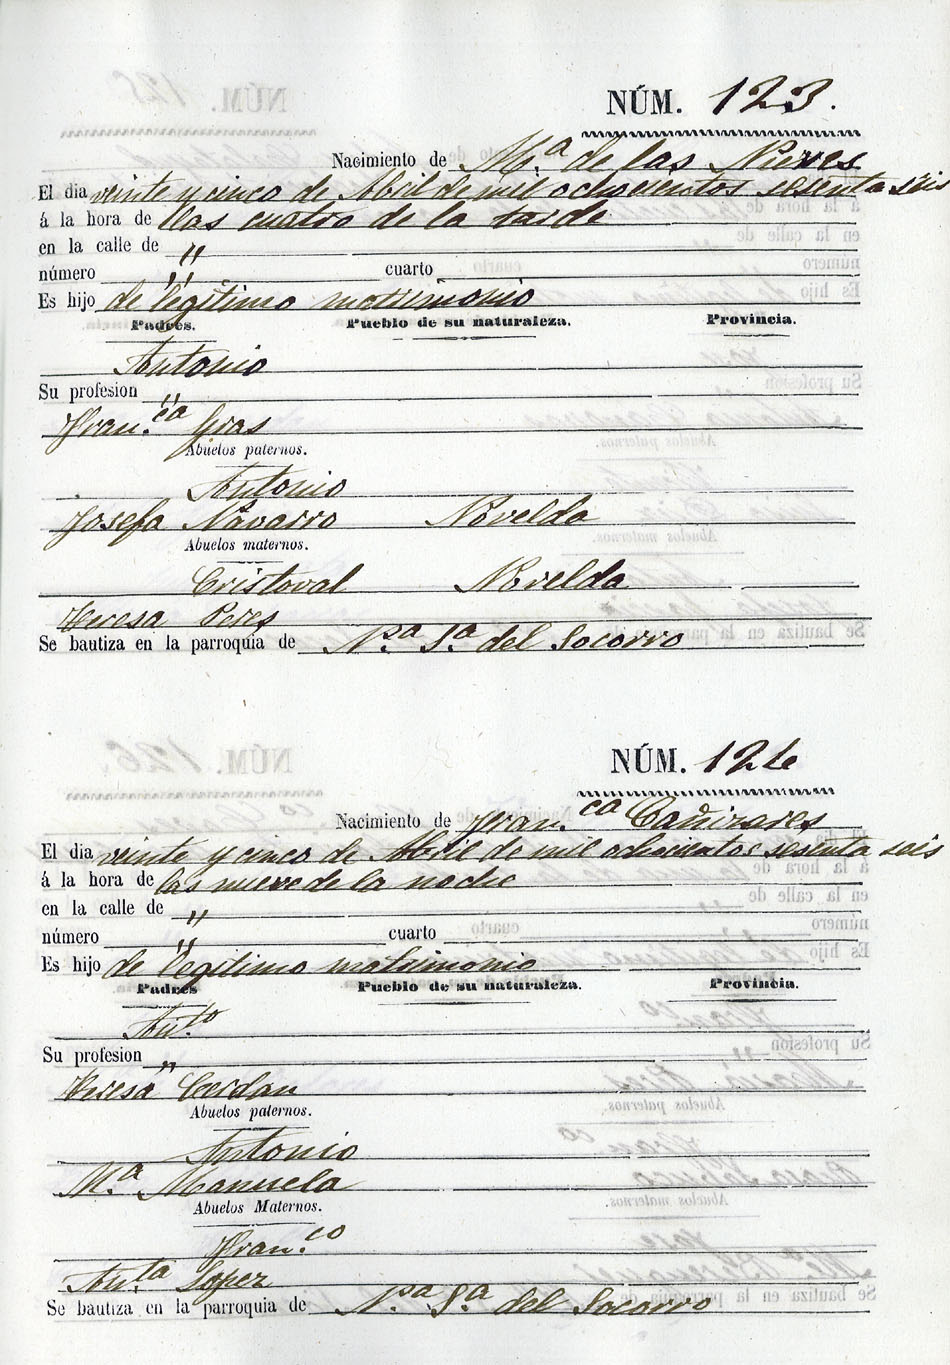 NÚM. 123.
Nacimiento de M.ª de las Nieves
El dia veinte y cinco de Abril de mil ochocientos sesenta seis
á la hora de las cuatro de la tarde
en la calle de "
número " cuarto
Es hijo de legitimo matrimonio
Padres. Pueblo de su naturaleza. Provincia.
Antonio
Su profesion "
Fran.ca Gras
Abuelos paternos.
Antonio
Josefa Navarro Novelda
Abuelos maternos.
Cristoval Novelda
Teresa Peres
Se bautiza en la parroquia de N.ª S.ª del Socorro
NÚM. 124
Nacimiento de Fran.ca Cañizares
El dia veinte y cinco de Abril de mil ochocientos sesenta seis
á la hora de las nueve de la noche
en la calle de "
número " cuarto
Es hijo de legitimo matrimonio
Padres Pueblo de su naturaleza. Provincia.
Ant.to
Su profesion "
Teresa Cerdan
Abuelos paternos.
Antonio
M.ª Manuela
Abuelos Maternos.
Fran.co
Ant.ta Lopez
Se bautiza en la parroquia de N.ª S.ª del Socorro